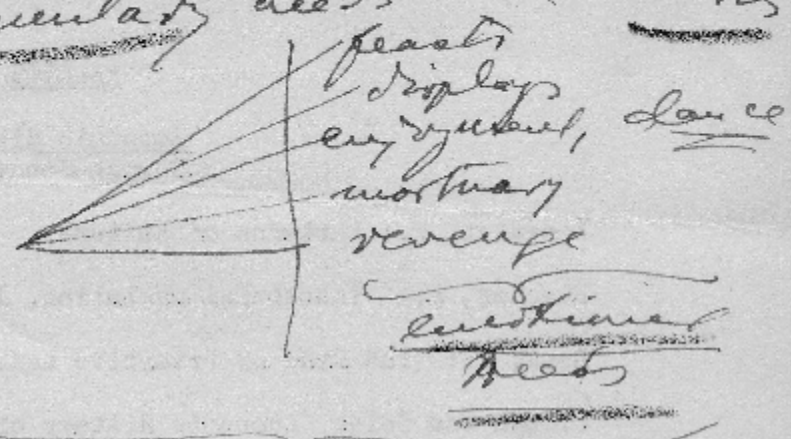 needs
feasts
display
enjoyment, dance
mortuary
revenge
emotional
needs